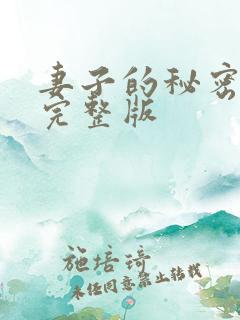 妻子的秘密
完整版
施培琦
未经同意禁止转载